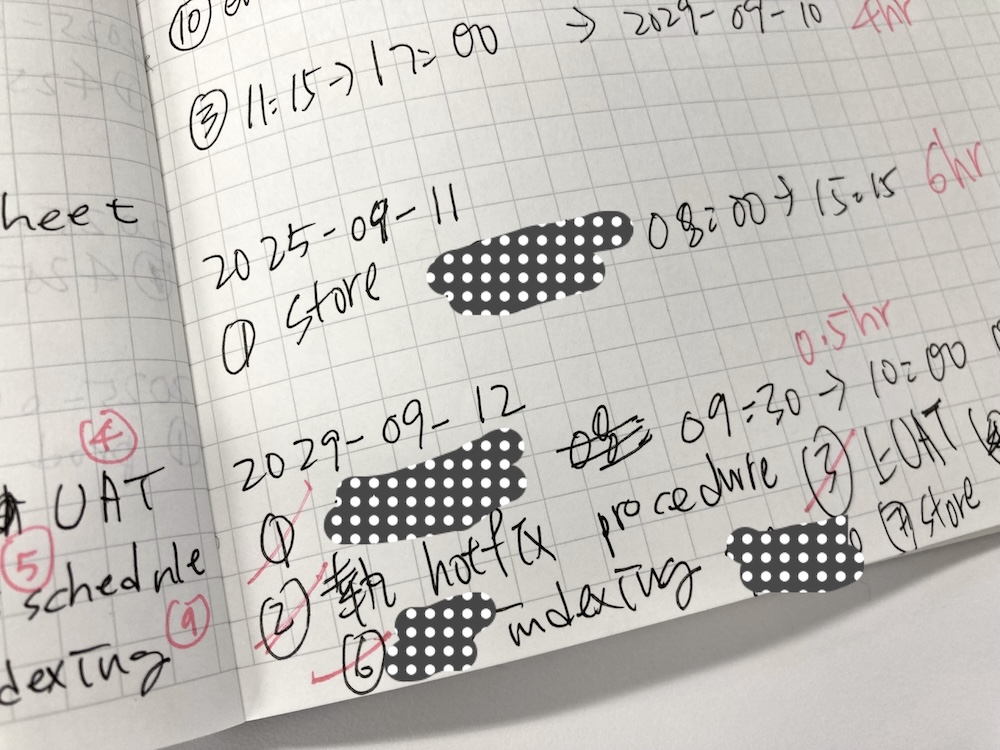 ⑩
③ 11:15→17:00 → 2029-09-10 4hr
2025-09-11
① Store 08:00→15:15 6hr
0.5hr
2029-09-12 09:30→10:00
①
② 執 hotfix procedure ③ 上UAT
⑥ indexing ⑦ store
heet
④
UAT
⑤
schedule
⑨
dexing